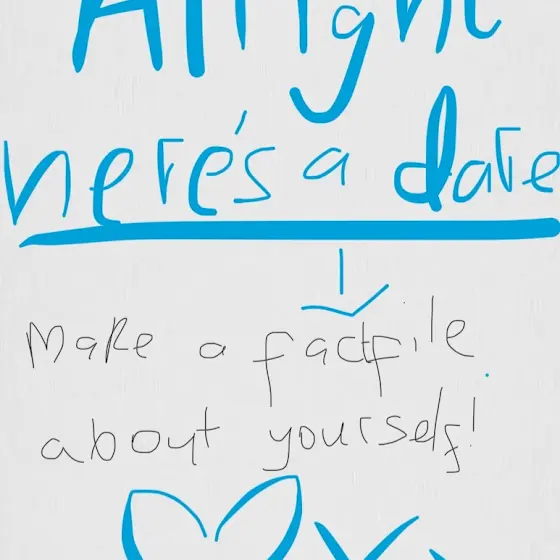 Alright
here's a dare
Make a factfile
about yourself!